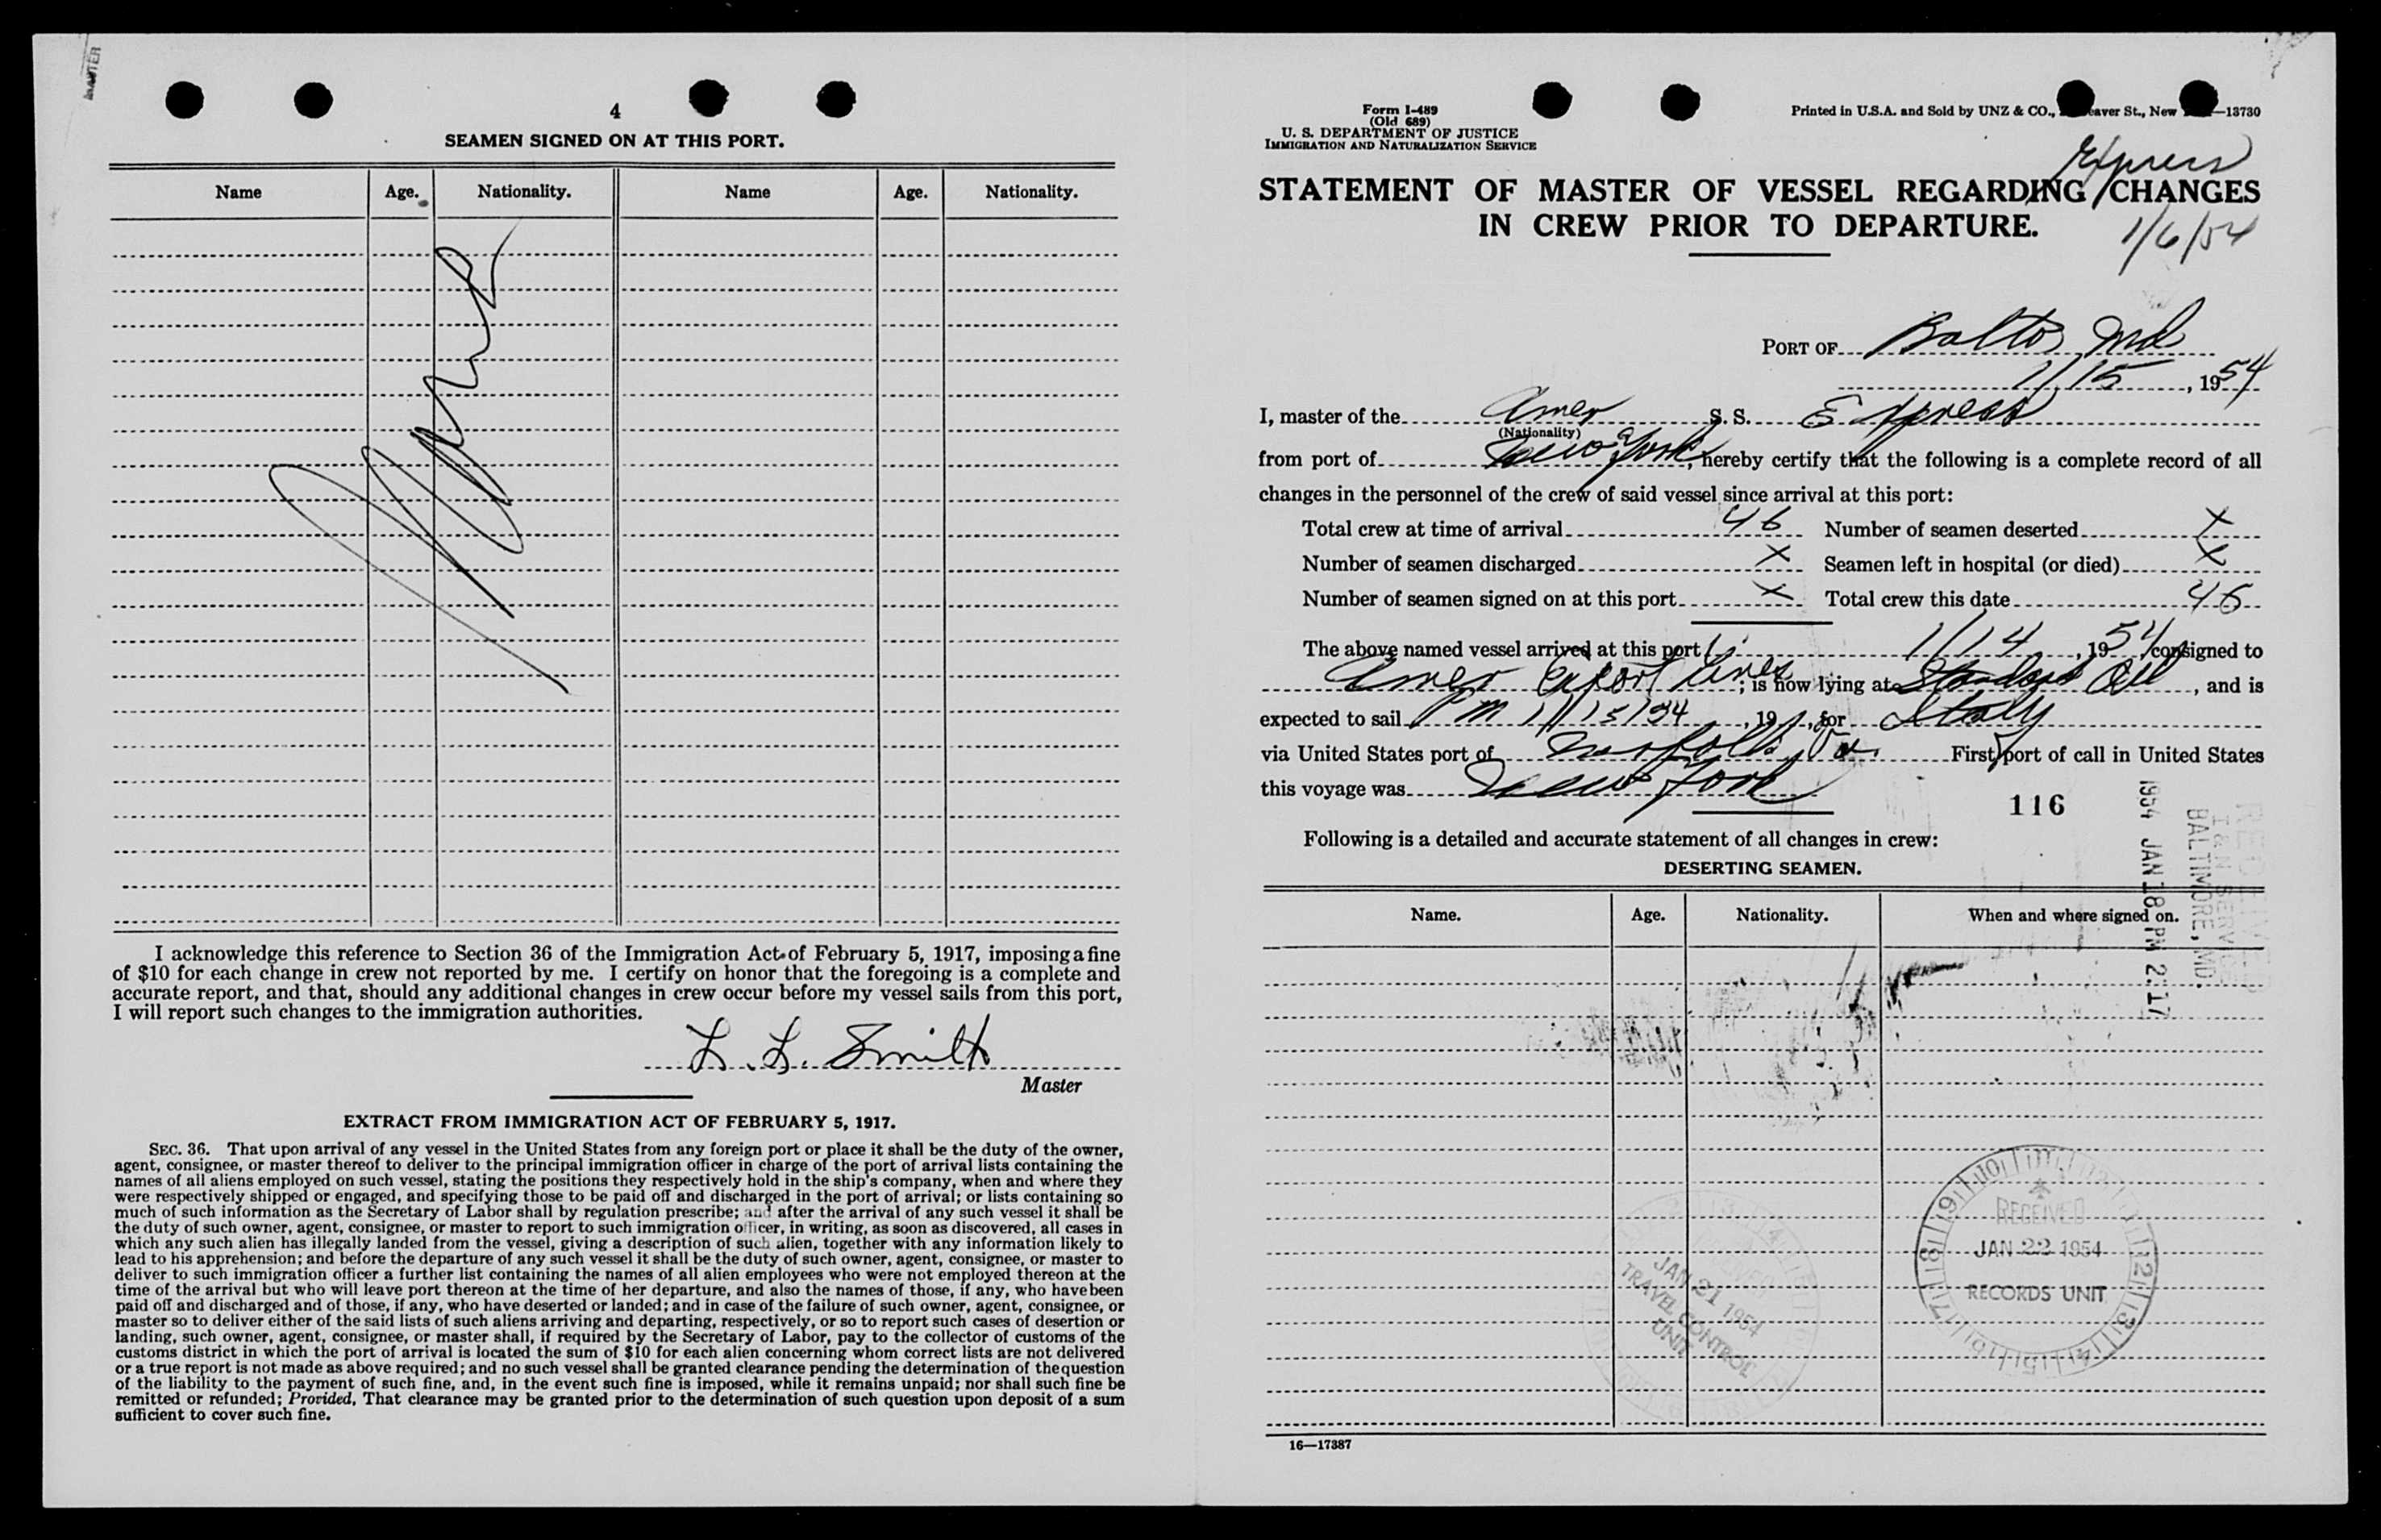 MASTER
4
SEAMEN SIGNED ON AT THIS PORT.
Name Age. Nationality. Name Age. Nationality.
None
I acknowledge this reference to Section 36 of the Immigration Act of February 5, 1917, imposing a fine
of $10 for each change in crew not reported by me. I certify on honor that the foregoing is a complete and
accurate report, and that, should any additional changes in crew occur before my vessel sails from this port,
I will report such changes to the immigration authorities.
L. L. Smith
Master
EXTRACT FROM IMMIGRATION ACT OF FEBRUARY 5, 1917.
SEC. 36. That upon arrival of any vessel in the United States from any foreign port or place it shall be the duty of the owner,
agent, consignee, or master thereof to deliver to the principal immigration officer in charge of the port of arrival lists containing the
names of all aliens employed on such vessel, stating the positions they respectively hold in the ship's company, when and where they
were respectively shipped or engaged, and specifying those to be paid off and discharged in the port of arrival; or lists containing so
much of such information as the Secretary of Labor shall by regulation prescribe; and after the arrival of any such vessel it shall be
the duty of such owner, agent, consignee, or master to report to such immigration officer, in writing, as soon as discovered, all cases in
which any such alien has illegally landed from the vessel, giving a description of such alien, together with any information likely to
lead to his apprehension; and before the departure of any such vessel it shall be the duty of such owner, agent, consignee, or master to
deliver to such immigration officer a further list containing the names of all alien employees who were not employed thereon at the
time of the arrival but who will leave port thereon at the time of her departure, and also the names of those, if any, who have been
paid off and discharged and of those, if any, who have deserted or landed; and in case of the failure of such owner, agent, consignee, or
master so to deliver either of the said lists of such aliens arriving and departing, respectively, or so to report such cases of desertion or
landing, such owner, agent, consignee, or master shall, if required by the Secretary of Labor, pay to the collector of customs of the
customs district in which the port of arrival is located the sum of $10 for each alien concerning whom correct lists are not delivered
or a true report is not made as above required; and no such vessel shall be granted clearance pending the determination of the question
of the liability to the payment of such fine, and, in the event such fine is imposed, while it remains unpaid; nor shall such fine be
remitted or refunded; Provided, That clearance may be granted prior to the determination of such question upon deposit of a sum
sufficient to cover such fine.
Form I-489
(Old 689)
U. S. DEPARTMENT OF JUSTICE
IMMIGRATION AND NATURALIZATION SERVICE
Printed in U.S.A. and Sold by UNZ & CO., eaver St., New —13730
Express
STATEMENT OF MASTER OF VESSEL REGARDING CHANGES
IN CREW PRIOR TO DEPARTURE.
1/6/54
PORT OF Balto, Md
1/15, 1954
I, master of the Amer S. S. Express
(Nationality)
from port of New York, hereby certify that the following is a complete record of all
changes in the personnel of the crew of said vessel since arrival at this port:
Total crew at time of arrival 46 Number of seamen deserted X
Number of seamen discharged X Seamen left in hospital (or died) X
Number of seamen signed on at this port X Total crew this date 46
The above named vessel arrived at this port 1/14, 1954, consigned to
Amer Export Lines; is now lying at Standard Oil, and is
expected to sail PM 1/15/54, 19, for Italy
via United States port of Norfolk, Va. First port of call in United States
this voyage was New York
116
Following is a detailed and accurate statement of all changes in crew:
DESERTING SEAMEN.
Name. Age. Nationality. When and where signed on.
RECEIVED
I & N SERVICE
BALTIMORE, MD.
1954 JAN 18 PM 2:17
RECEIVED
JAN 22 1954
RECORDS UNIT
JAN 21 1954
TRAVEL CONTROL
UNIT
16—17387